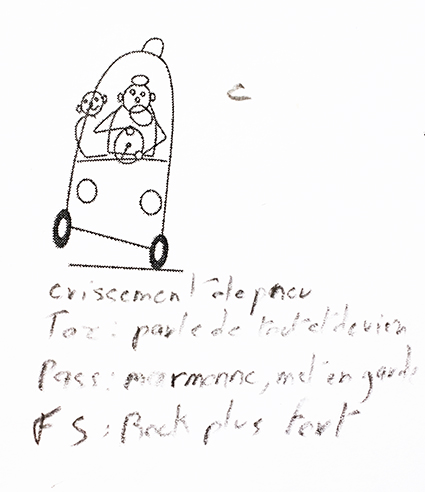 crissement de pneu
Tax : parle de tout et de rien
Pass : marmonne, met en garde
F S : Rock plus fort